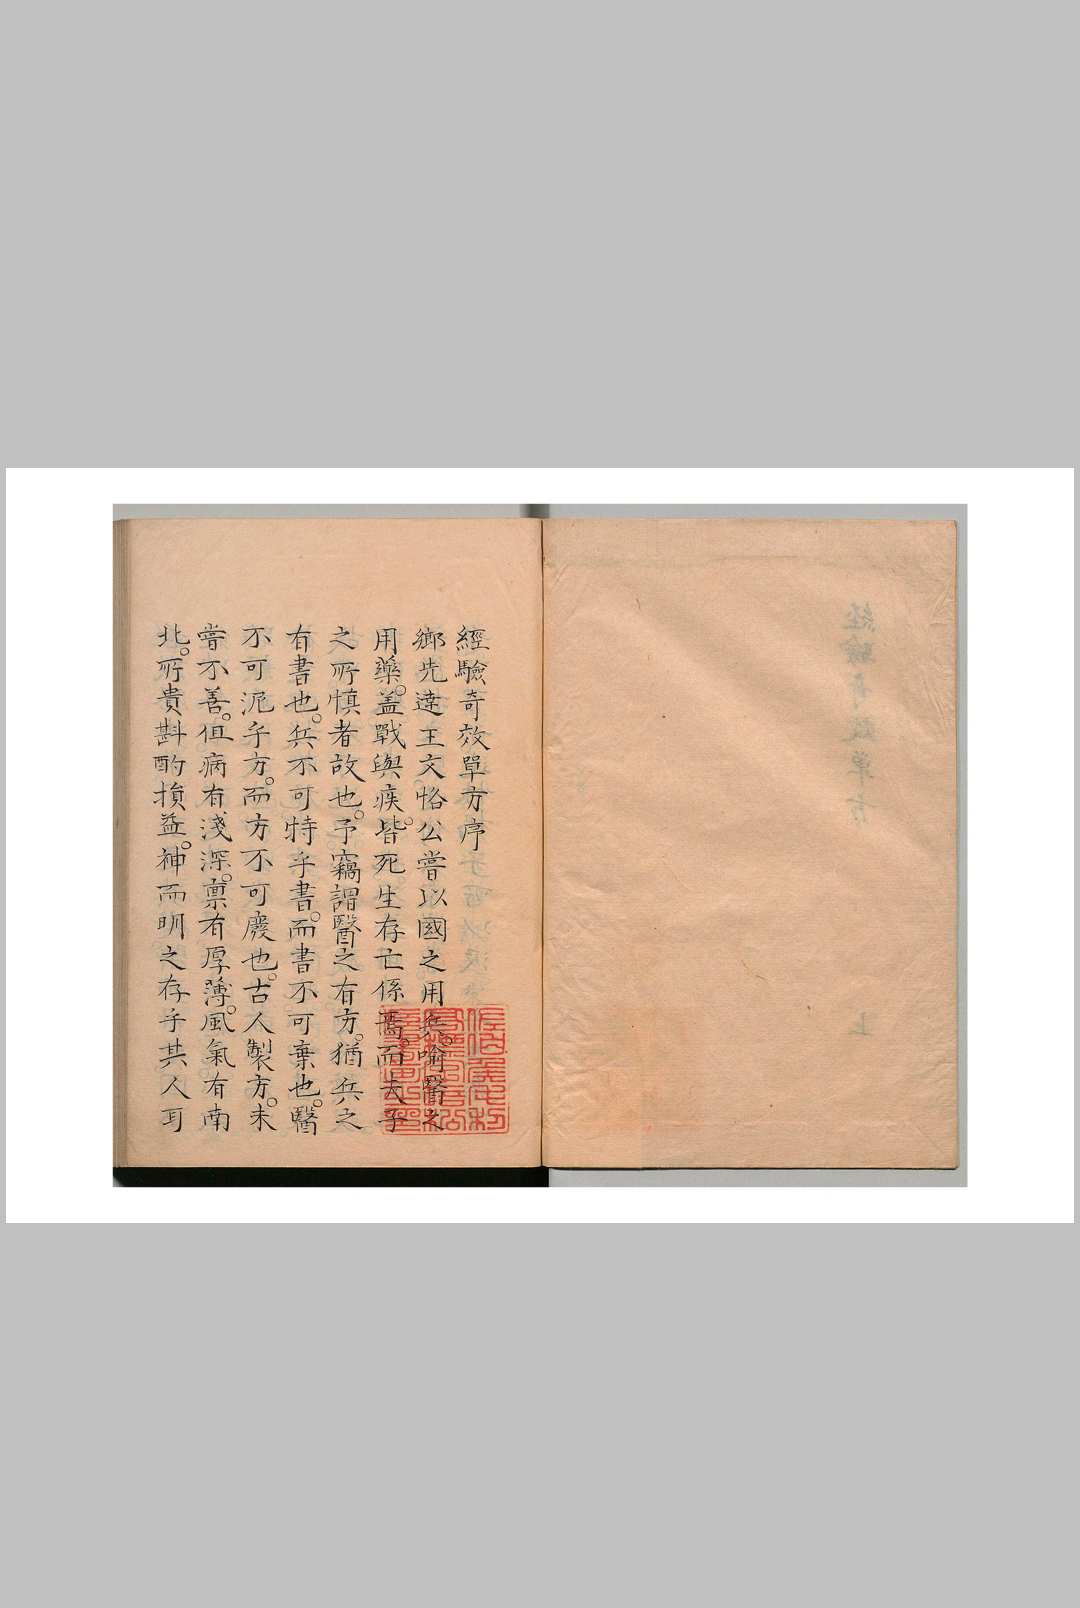 經驗奇效單方序
鄉先達王文恪公嘗以國之用兵。喻醫之
用藥。盖戰與疾。皆死生存亡係焉。而夫子
之所慎者故也。予竊謂醫之有方。猶兵之
有書也。兵不可恃乎書。而書不可棄也。醫
不可泥乎方。而方不可廢也。古人製方。未
嘗不善。但病有淺深。禀有厚薄。風氣有南
北。所貴斟酌損益。神而明之存乎其人耳